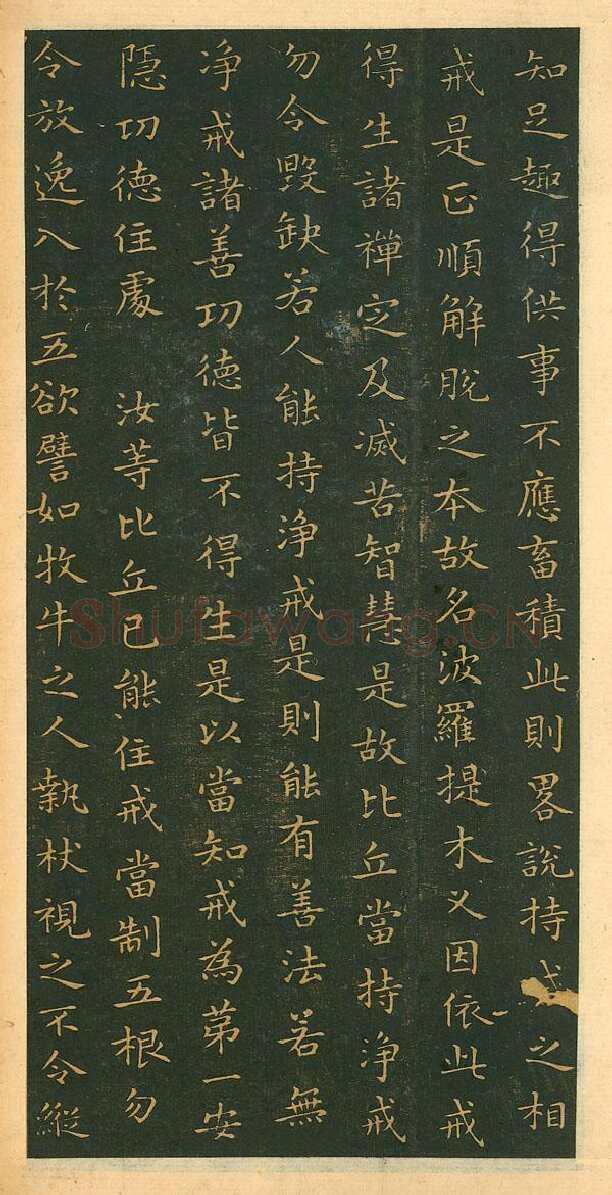 知足趣得供事不應畜積此則畧說持戒之相
戒是正順解脫之本故名波羅提木叉因依此戒
得生諸禪定及滅苦智慧是故比丘當持淨戒
勿令毀缺若人能持淨戒是則能有善法若無
净戒諸善功德皆不得生是以當知戒為苐一安
隱功德住處　汝等比丘已能住戒當制五根勿
令放逸入於五欲譬如牧牛之人執杖視之不令縱
Shufawang.CN